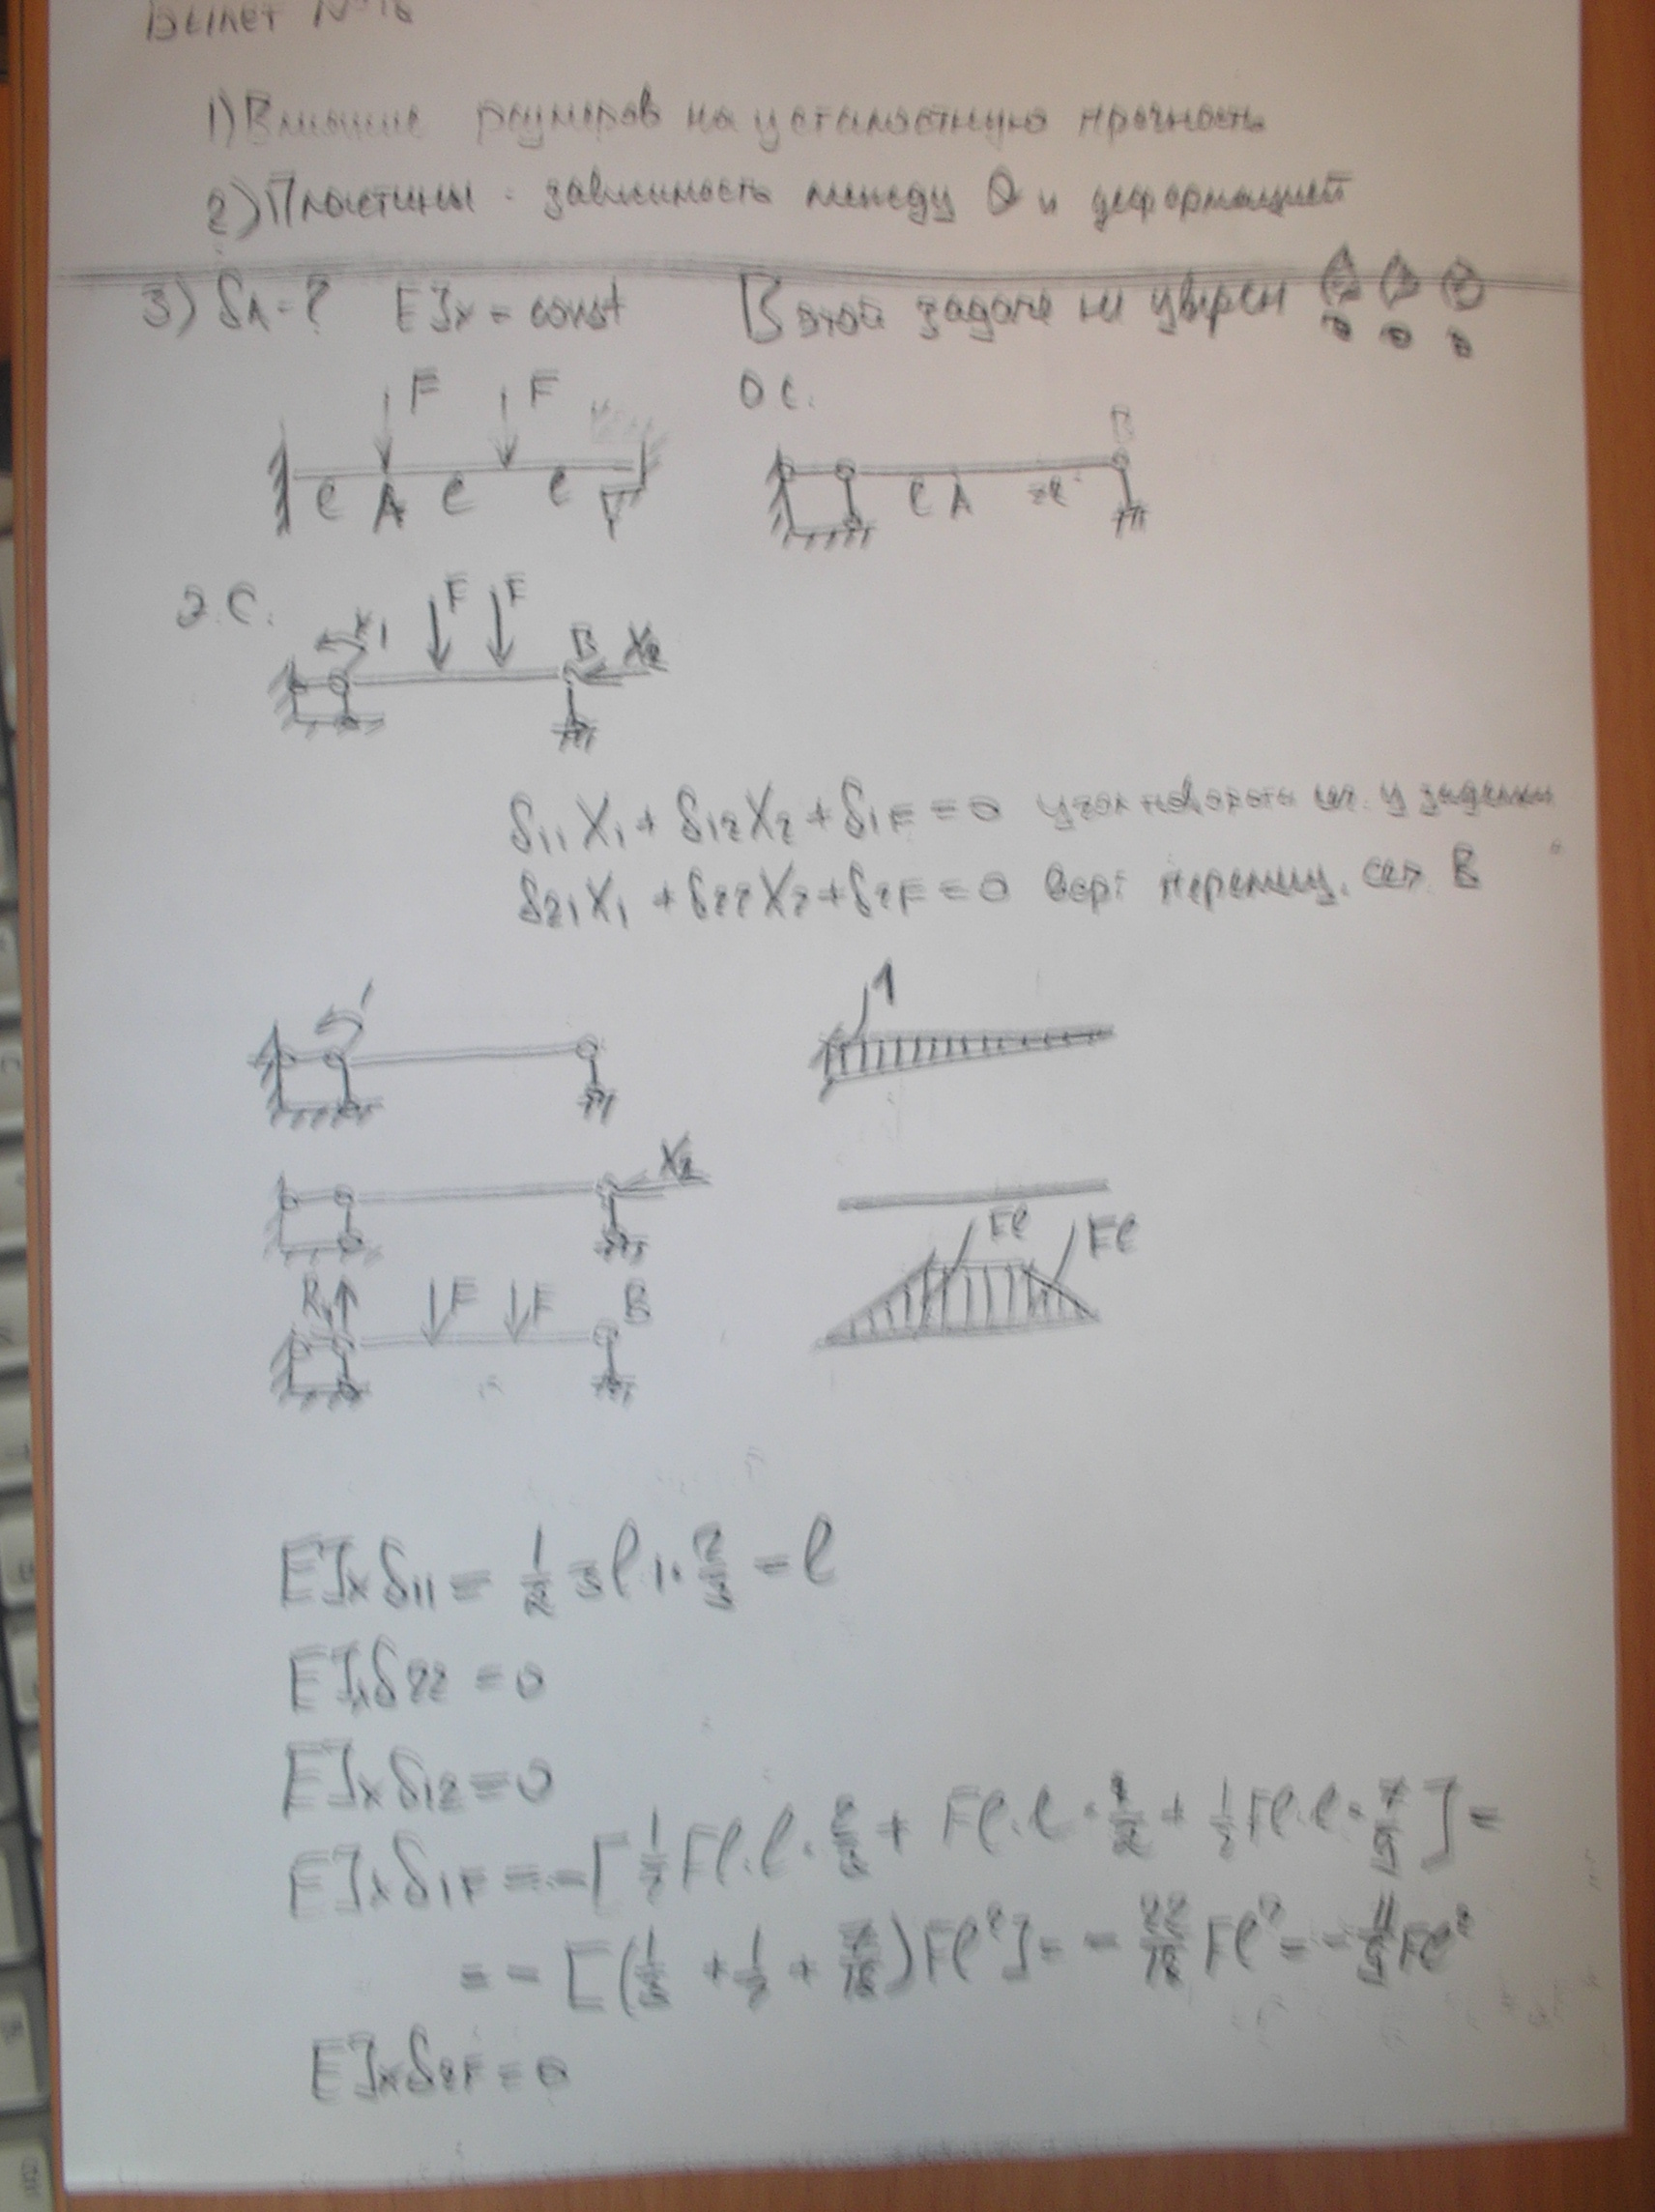 Билет №16
1) Влияние размеров на усталостную прочность
2) Пластины - зависимость между Q и деформацией
3) δA = ? EJx = const В этой задаче не уверен !!!
F F О.С.
l A l l
l A 2l B
Э.С. X1 F F B X2
δ11X1 + δ12X2 + δ1F = 0 угол поворота сеч. у заделки
δ21X1 + δ22X2 + δ2F = 0 верт перемещ. сеч. B
1 1
X2
R F F B Fl Fl
EJxδ11 = 1/2 3l 1 · 2/3 = l
EJxδ22 = 0
EJxδ12 = 0
EJxδ1F = -[1/2 Fl · l · 2/3 + Fl · l · 1/2 + 1/2 Fl · l · 7/9] =
= -[(1/3 + 1/2 + 7/18)Fl²] = -22/18 Fl² = -11/9 Fl²
EJxδ2F = 0